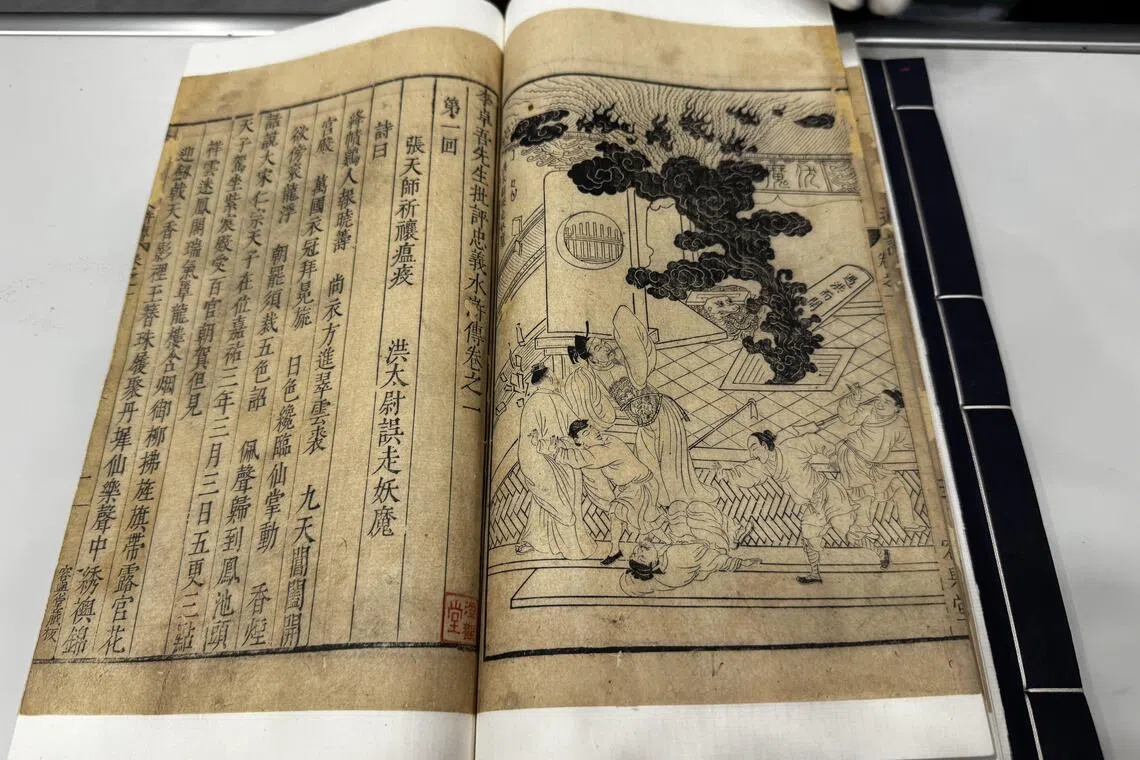 伏魔
遇洪而開
李卓吾先生批評忠義水滸傳卷之一
第一回
張天師祈禳瘟疫 洪太尉誤走妖魔
詩曰
絳幘鷄人報曉籌 尚衣方進翠雲裘 九天閶闔開
宮殿 萬國衣冠拜冕旒 日色纔臨仙掌動 香煙
欲傍袞龍浮 朝罷須裁五色詔 佩聲歸到鳳池頭
話說大宋仁宗天子在位嘉祐三年三月三日五更三點
天子駕坐紫宸殿受百官朝賀但見
祥雲迷鳳閣瑞氣罩龍樓含烟御柳拂旌旗帶露宮花
迎劍戟天香影裡玉簪珠履聚丹墀仙樂聲中綉襖錦
容與堂藏板